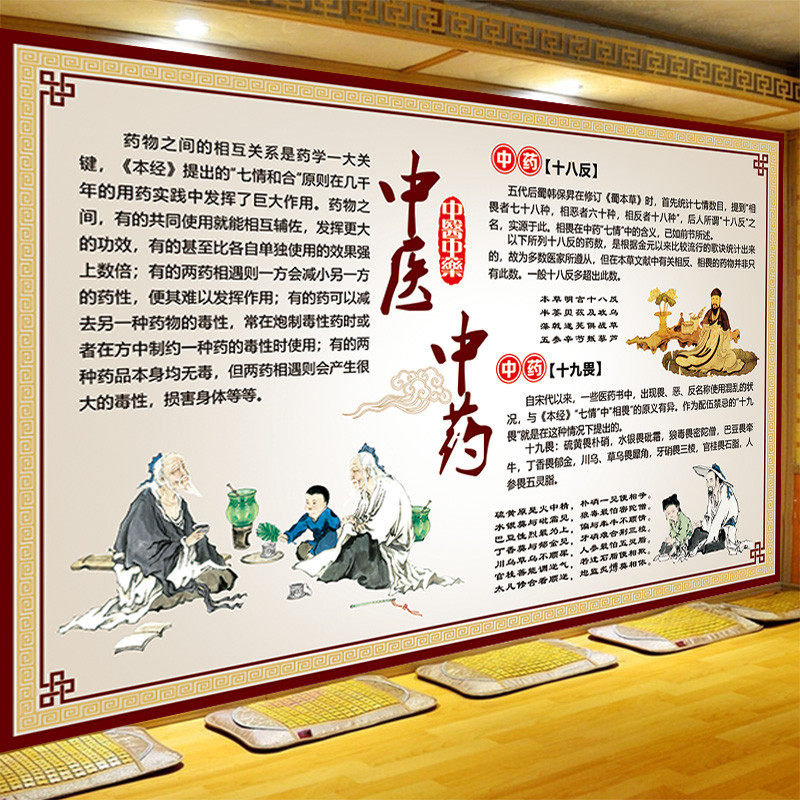 药物之间的相互关系是药学一大关
键，《本经》提出的“七情和合”原则在几千
年的用药实践中发挥了巨大作用。药物之
间，有的共同使用就能相互辅佐，发挥更大
的功效，有的甚至比各自单独使用的效果强
上数倍；有的两药相遇则一方会减小另一方
的药性，便其难以发挥作用；有的药可以减
去另一种药物的毒性，常在炮制毒性药时或
者在方中制约一种药的毒性时使用；有的两
种药品本身均无毒，但两药相遇则会产生很
大的毒性，损害身体等等。
中医
中醫中藥
中药
中药【十八反】
五代后蜀韩保昇在修订《蜀本草》时，首先统计七情数目，提到“相
畏者七十八种，相恶者六十种，相反者十八种”，后人所谓“十八反”之
名，实源于此。相畏在中药“七情”中的含义，已如前节所述。
以下所列十八反的药数，是根据金元以来比较流行的歌诀统计出来
的，故为多数医家所遵从，但在本草文献中有关相反、相畏的药物并非只
有此数。一般十八反多超出此数。
本草明言十八反
半蒌贝蔹及攻乌
藻戟遂芫俱战草
五参辛芍叛藜芦
中药【十九畏】
自宋代以来，一些医药书中，出现畏、恶、反名称使用混乱的状
况，与《本经》“七情”中“相畏”的原义有异，作为配伍禁忌的“十九
畏”就是在这种情况下提出的。
十九畏：硫黄畏朴硝，水银畏砒霜，狼毒畏密陀僧，巴豆畏牵
牛，丁香畏郁金，川乌、草乌畏犀角，牙硝畏三棱，官桂畏石脂，人
参畏五灵脂。
硫黄原是火中精，朴硝一见便相争。
水银莫与砒霜见，狼毒最怕密陀僧。
巴豆性烈最为上，偏与牵牛不顺情。
丁香莫与郁金见，牙硝难合荆三棱。
川乌草乌不顺犀，人参最怕五灵脂。
官桂善能调逆气，若逢石脂便相欺。
大凡修合看顺逆，炮爁炙煿莫相依。